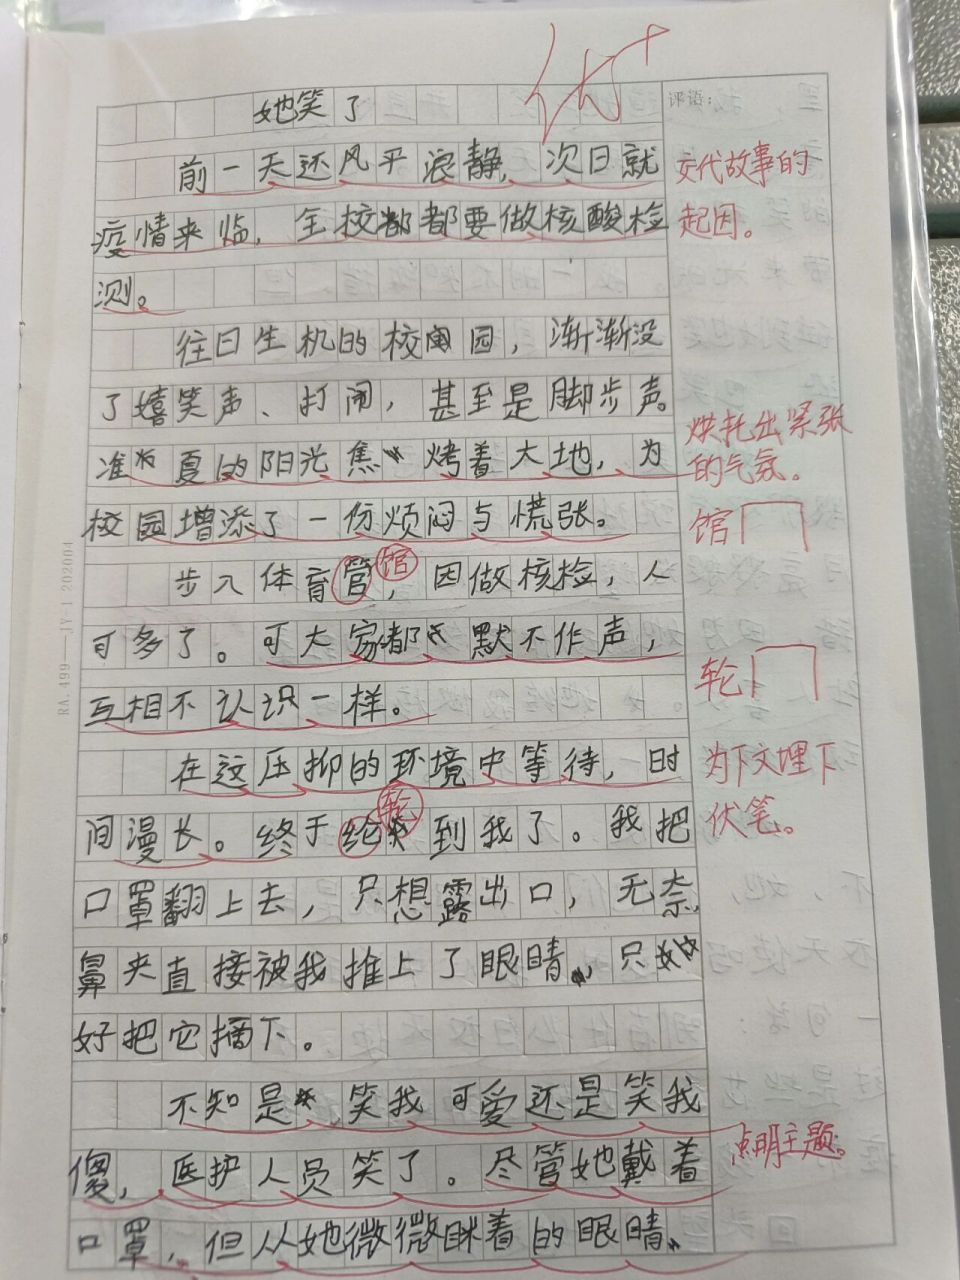 优+
她笑了
评语：
前一天还风平浪静，次日就
疫情来临，全校都都要做核酸检
测。
交代故事的
起因。
往日生机的校园园，渐渐没
了嬉笑声、打闹，甚至是脚步声。
准夏的阳光焦烤着大地，为
校园增添了一份烦闷与慌张。
烘托出紧张
的气氛。
馆
步入体育管，因做核检，人
馆
可多了。可大家都默不作声，
互相不认识一样。
轮
在这压抑的环境中等待，时
间漫长。终于纶到我了。我把
轮
为下文埋下
伏笔。
口罩翻上去，只想露出口，无奈，
鼻夹直接被我推上了眼睛，只
好把它摘下。
不知是笑我可爱还是笑我
傻，医护人员笑了。尽管她戴着
口罩，但从她微微眯着的眼睛，
点明主题。
RA.499—JY-1 202004